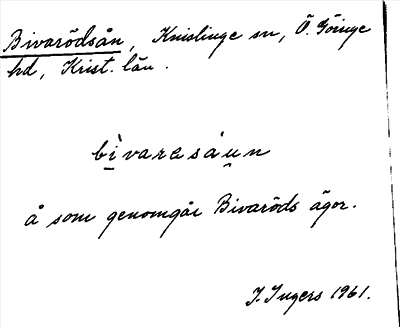 Bivarödsån, Knislinge sn, Ö. Göinge
hd, Krist. län.
bìvarasåu̯n
å som genomgår Bivaröds ägor.
I. Ingers 1961.